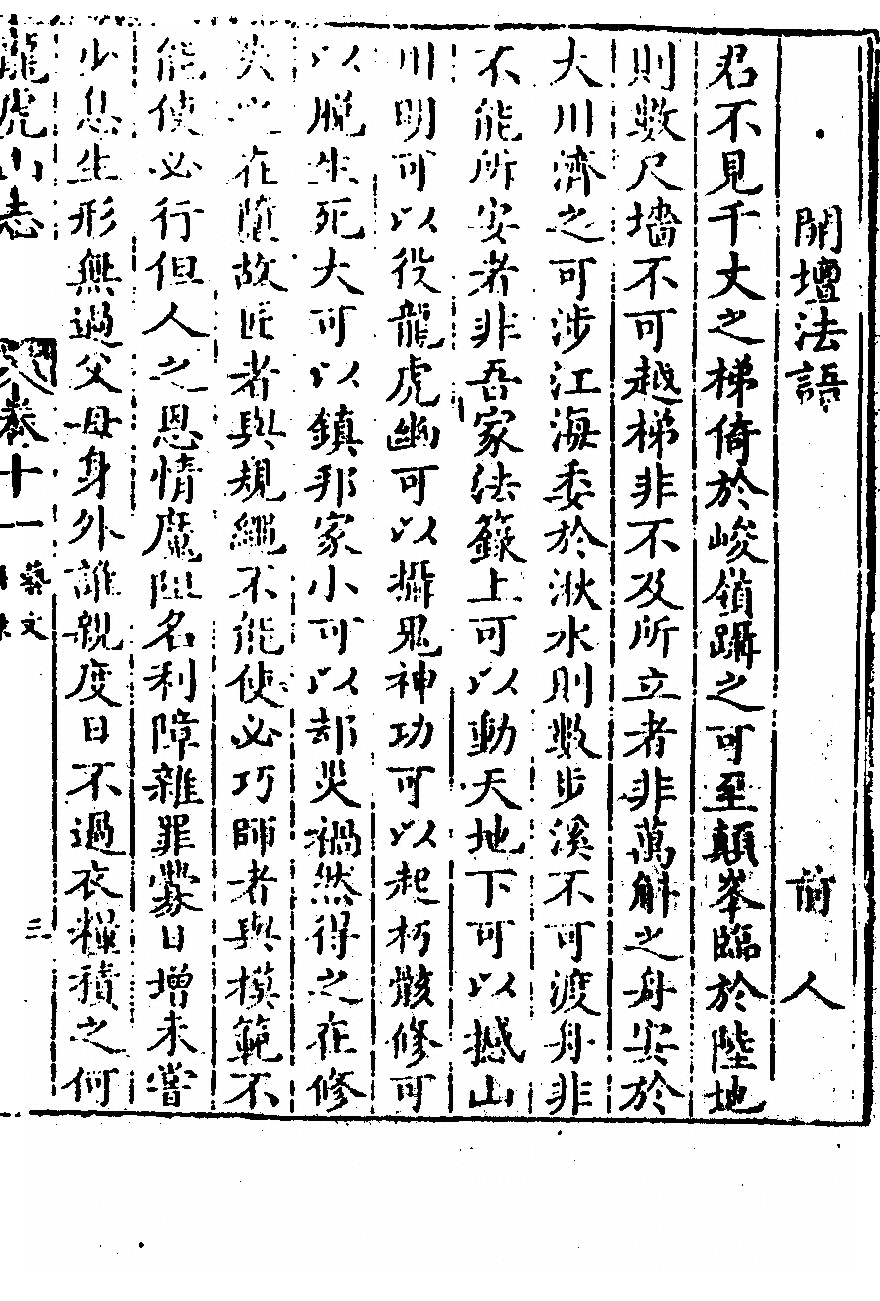 開壇法語 前人
君不見千丈之梯倚於峻嶺躡之可至顛峯臨於陸地
則數尺墻不可越梯非不及所立者非萬斛之舟安於
大川濟之可涉江海委於湫水則數步溪不可渡舟非
不能所安者非吾家法籙上可以動天地下可以撼山
川明可以役龍虎幽可以攝鬼神功可以起朽骸修可
以脫生死大可以鎮邦家小可以却災禍然得之在修
失之在墮故匠者與規繩不能使必巧師者與模範不
能使必行但人之恩情魔阻名利障雜罪釁日增未嘗
少息生形無過父母身外誰親度日不過衣糧積之何
龍虎山志 卷十一 藝文 三